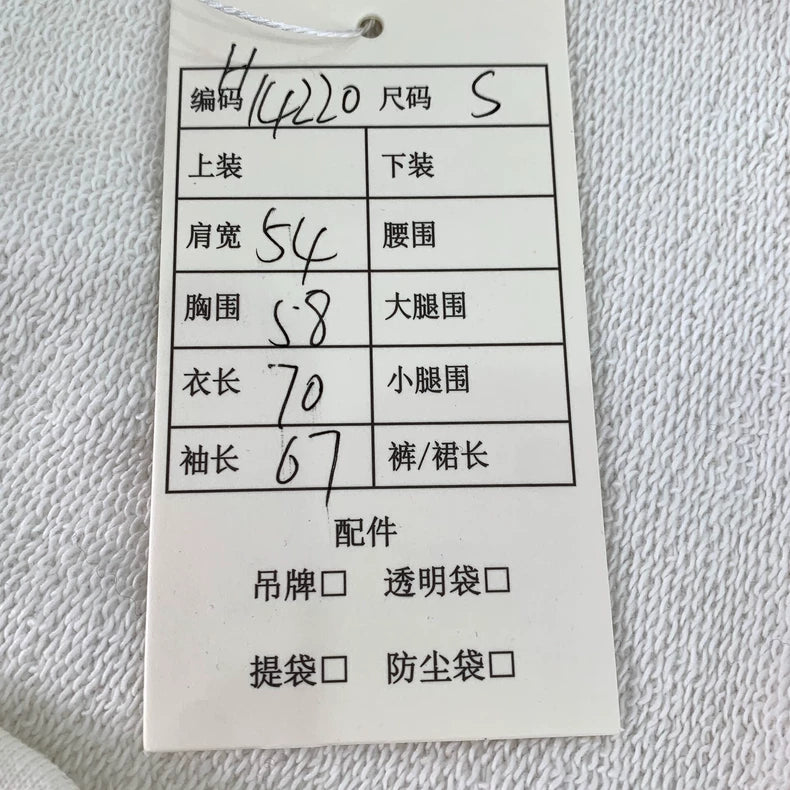 编码 H14220 尺码 S
上装 下装
肩宽 54 腰围
胸围 58 大腿围
衣长 70 小腿围
袖长 67 裤/裙长
配件
吊牌□ 透明袋□
提袋□ 防尘袋□